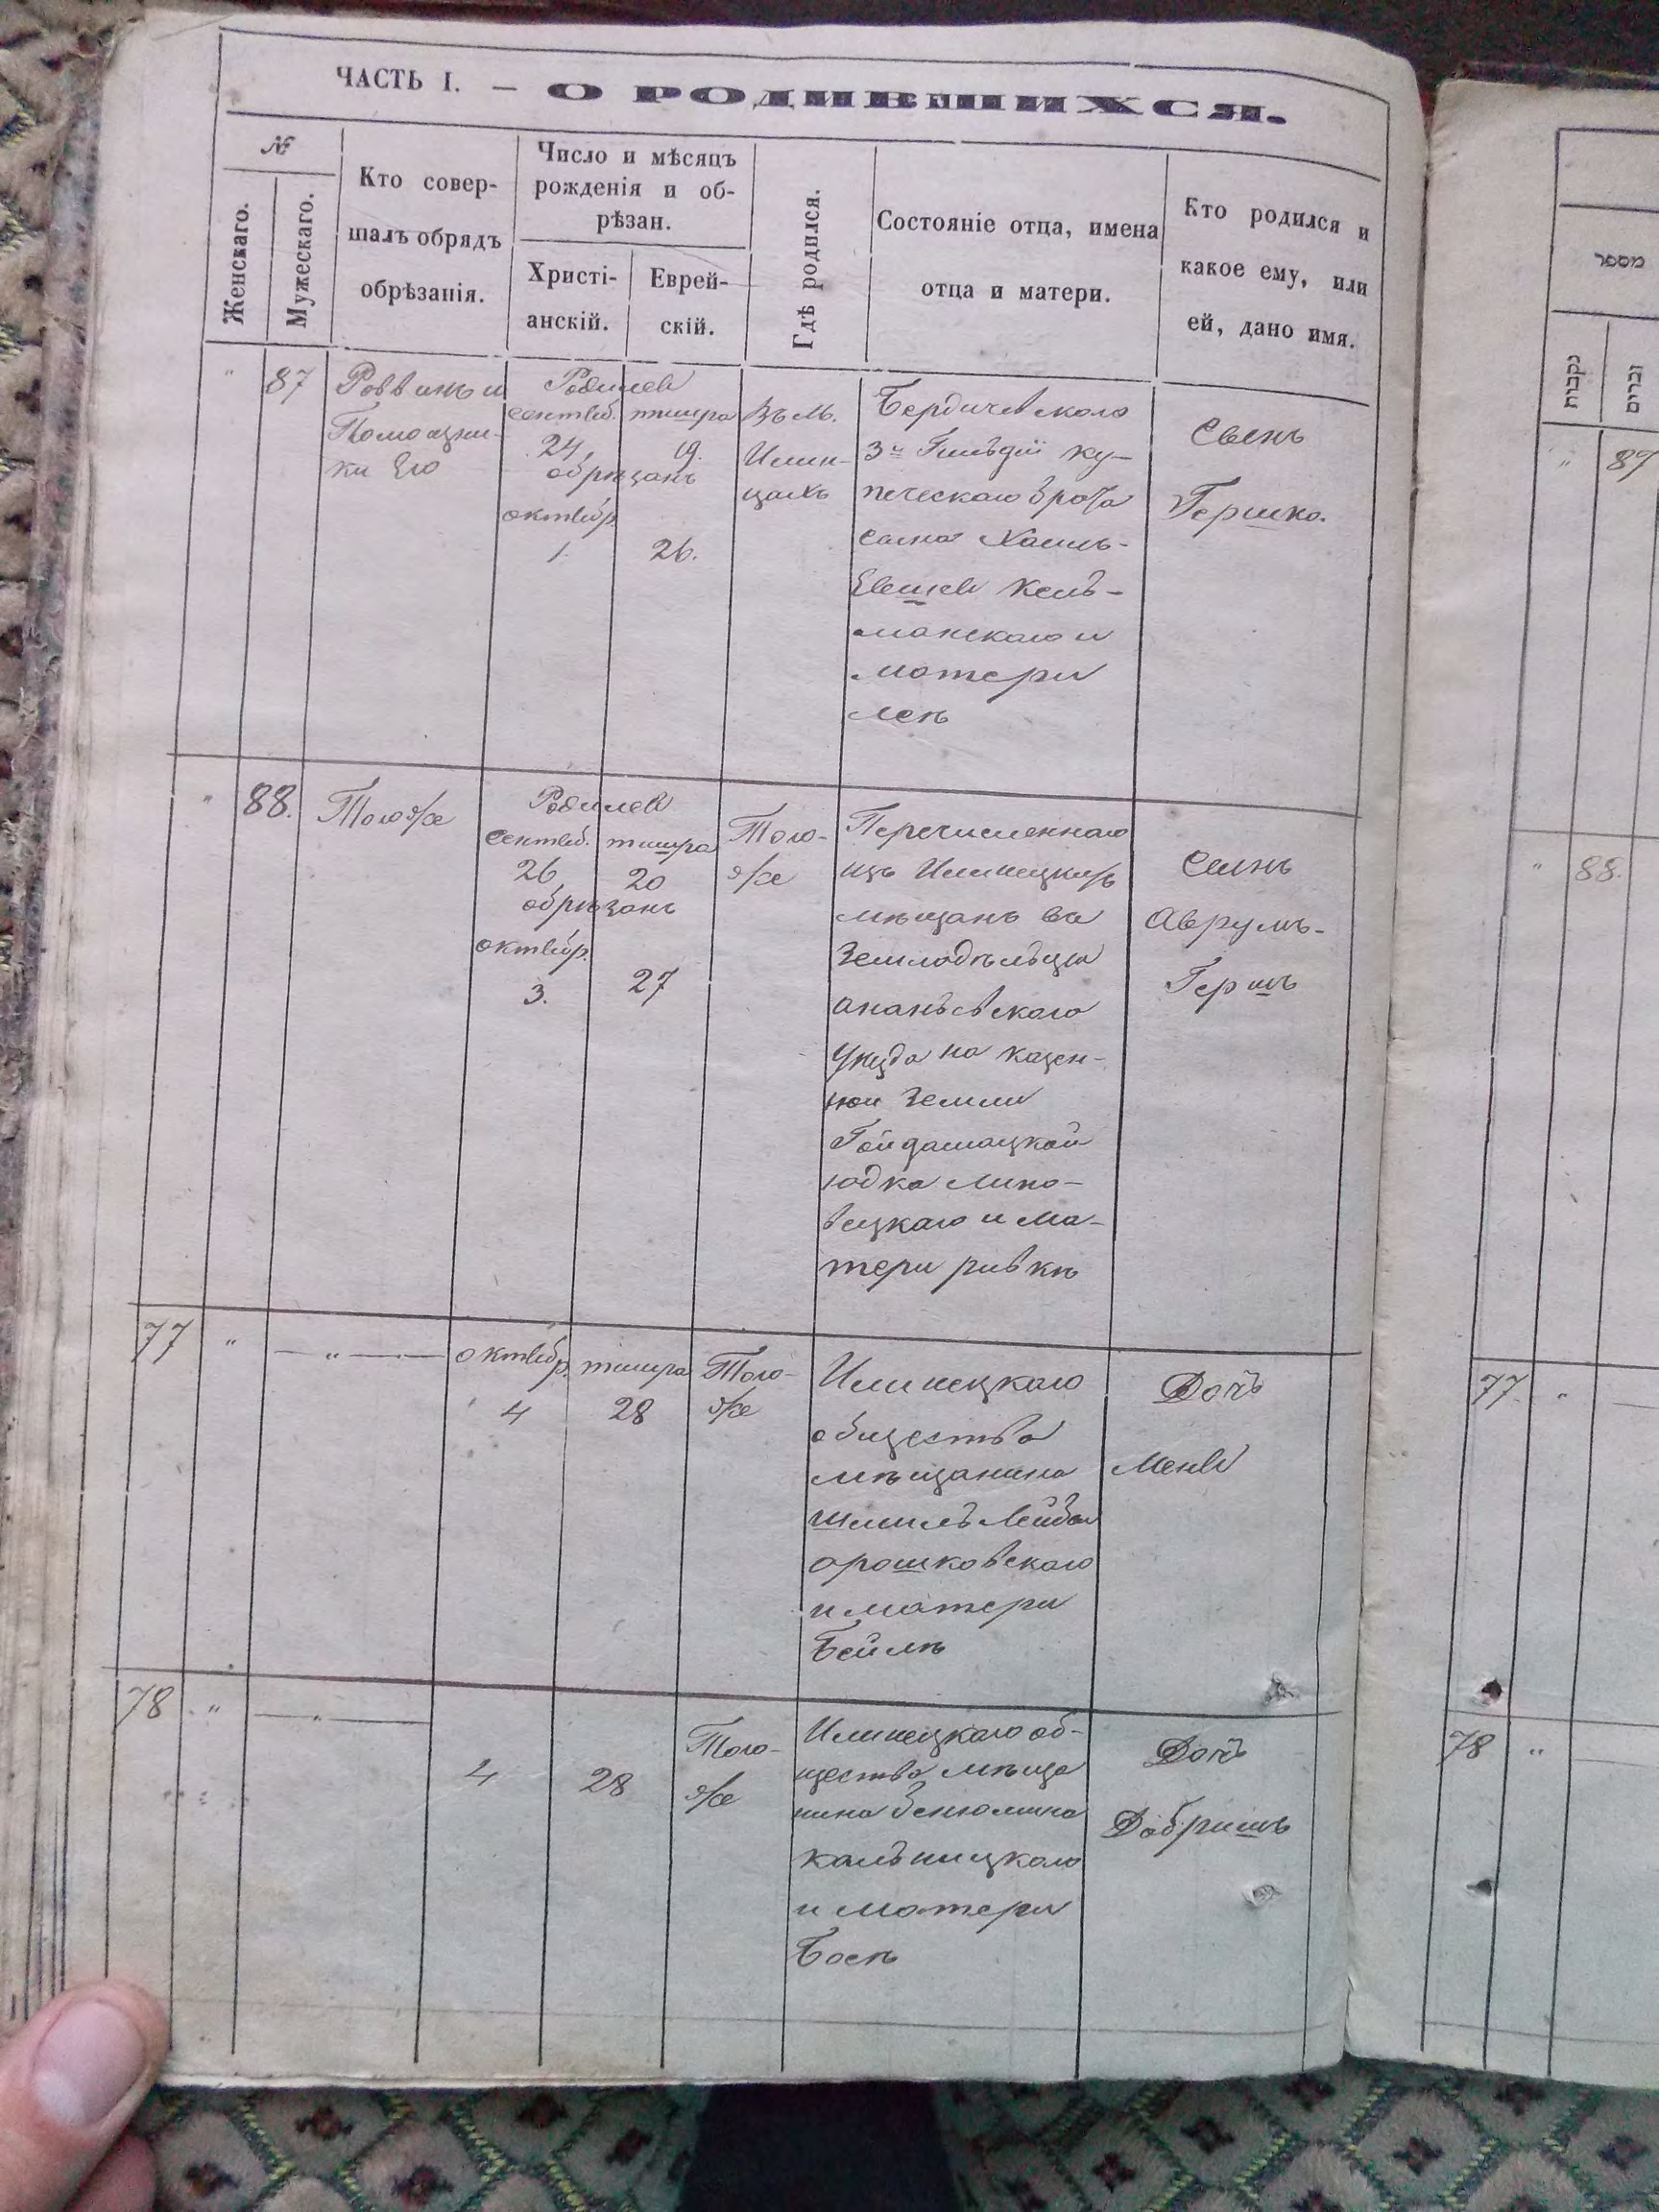 ЧАСТЬ I. — О РОДИВШИХСЯ.
№
Женскаго.
Мужескаго.
Кто совер-
шалъ обрядъ
обрѣзанія.
Число и мѣсяцъ
рожденія и об-
рѣзан.
Христі-
анскій.
Еврей-
скій.
Гдѣ родился.
Состояніе отца, имена
отца и матери.
Кто родился и
какое ему, или
ей, дано имя.
" 87
Раввинъ и
Помощни-
ки Его
Родился
сентяб. тишра
24, 19.
обрѣзанъ
октябр.
1. 26.
Въ М.
Илин-
цахъ
Бердичевскаго
3й Гильдіи ку-
печескаго брата
сына Хаимъ-
Кель-
манскаго и
матери
Леѣ
Сынъ
Гершко.
" 88.
Тогоже
Родился
сентяб. тишра
26 20
обрѣзанъ
октябр.
3. 27
Того-
же
Перечисленнаго
изъ Илинецкихъ
мѣщанъ въ
Земладѣльцы
ананьевскаго
Уѣзда на казен-
ной Земли
Гайдамацкой
юдка Липо-
вецкаго и ма-
тери ривкѣ
Сынъ
Аврумъ-
Гершъ
77 " — " —
октябр. тишра
4 28
Того-
же
Илинецкаго
общества
мѣщанина
Шмиль Лейба
орашковскаго
и матери
Бейлѣ
Дочь
Меня
78 " — " —
4 28
Того-
же
Илинецкаго об-
щества мѣща
нина Бенюмина
кальницкаго
и матери
Басѣ
Дочь
Добришъ
מספר
נקבות
זכרים
" 87
" 88.
77. "
78 "